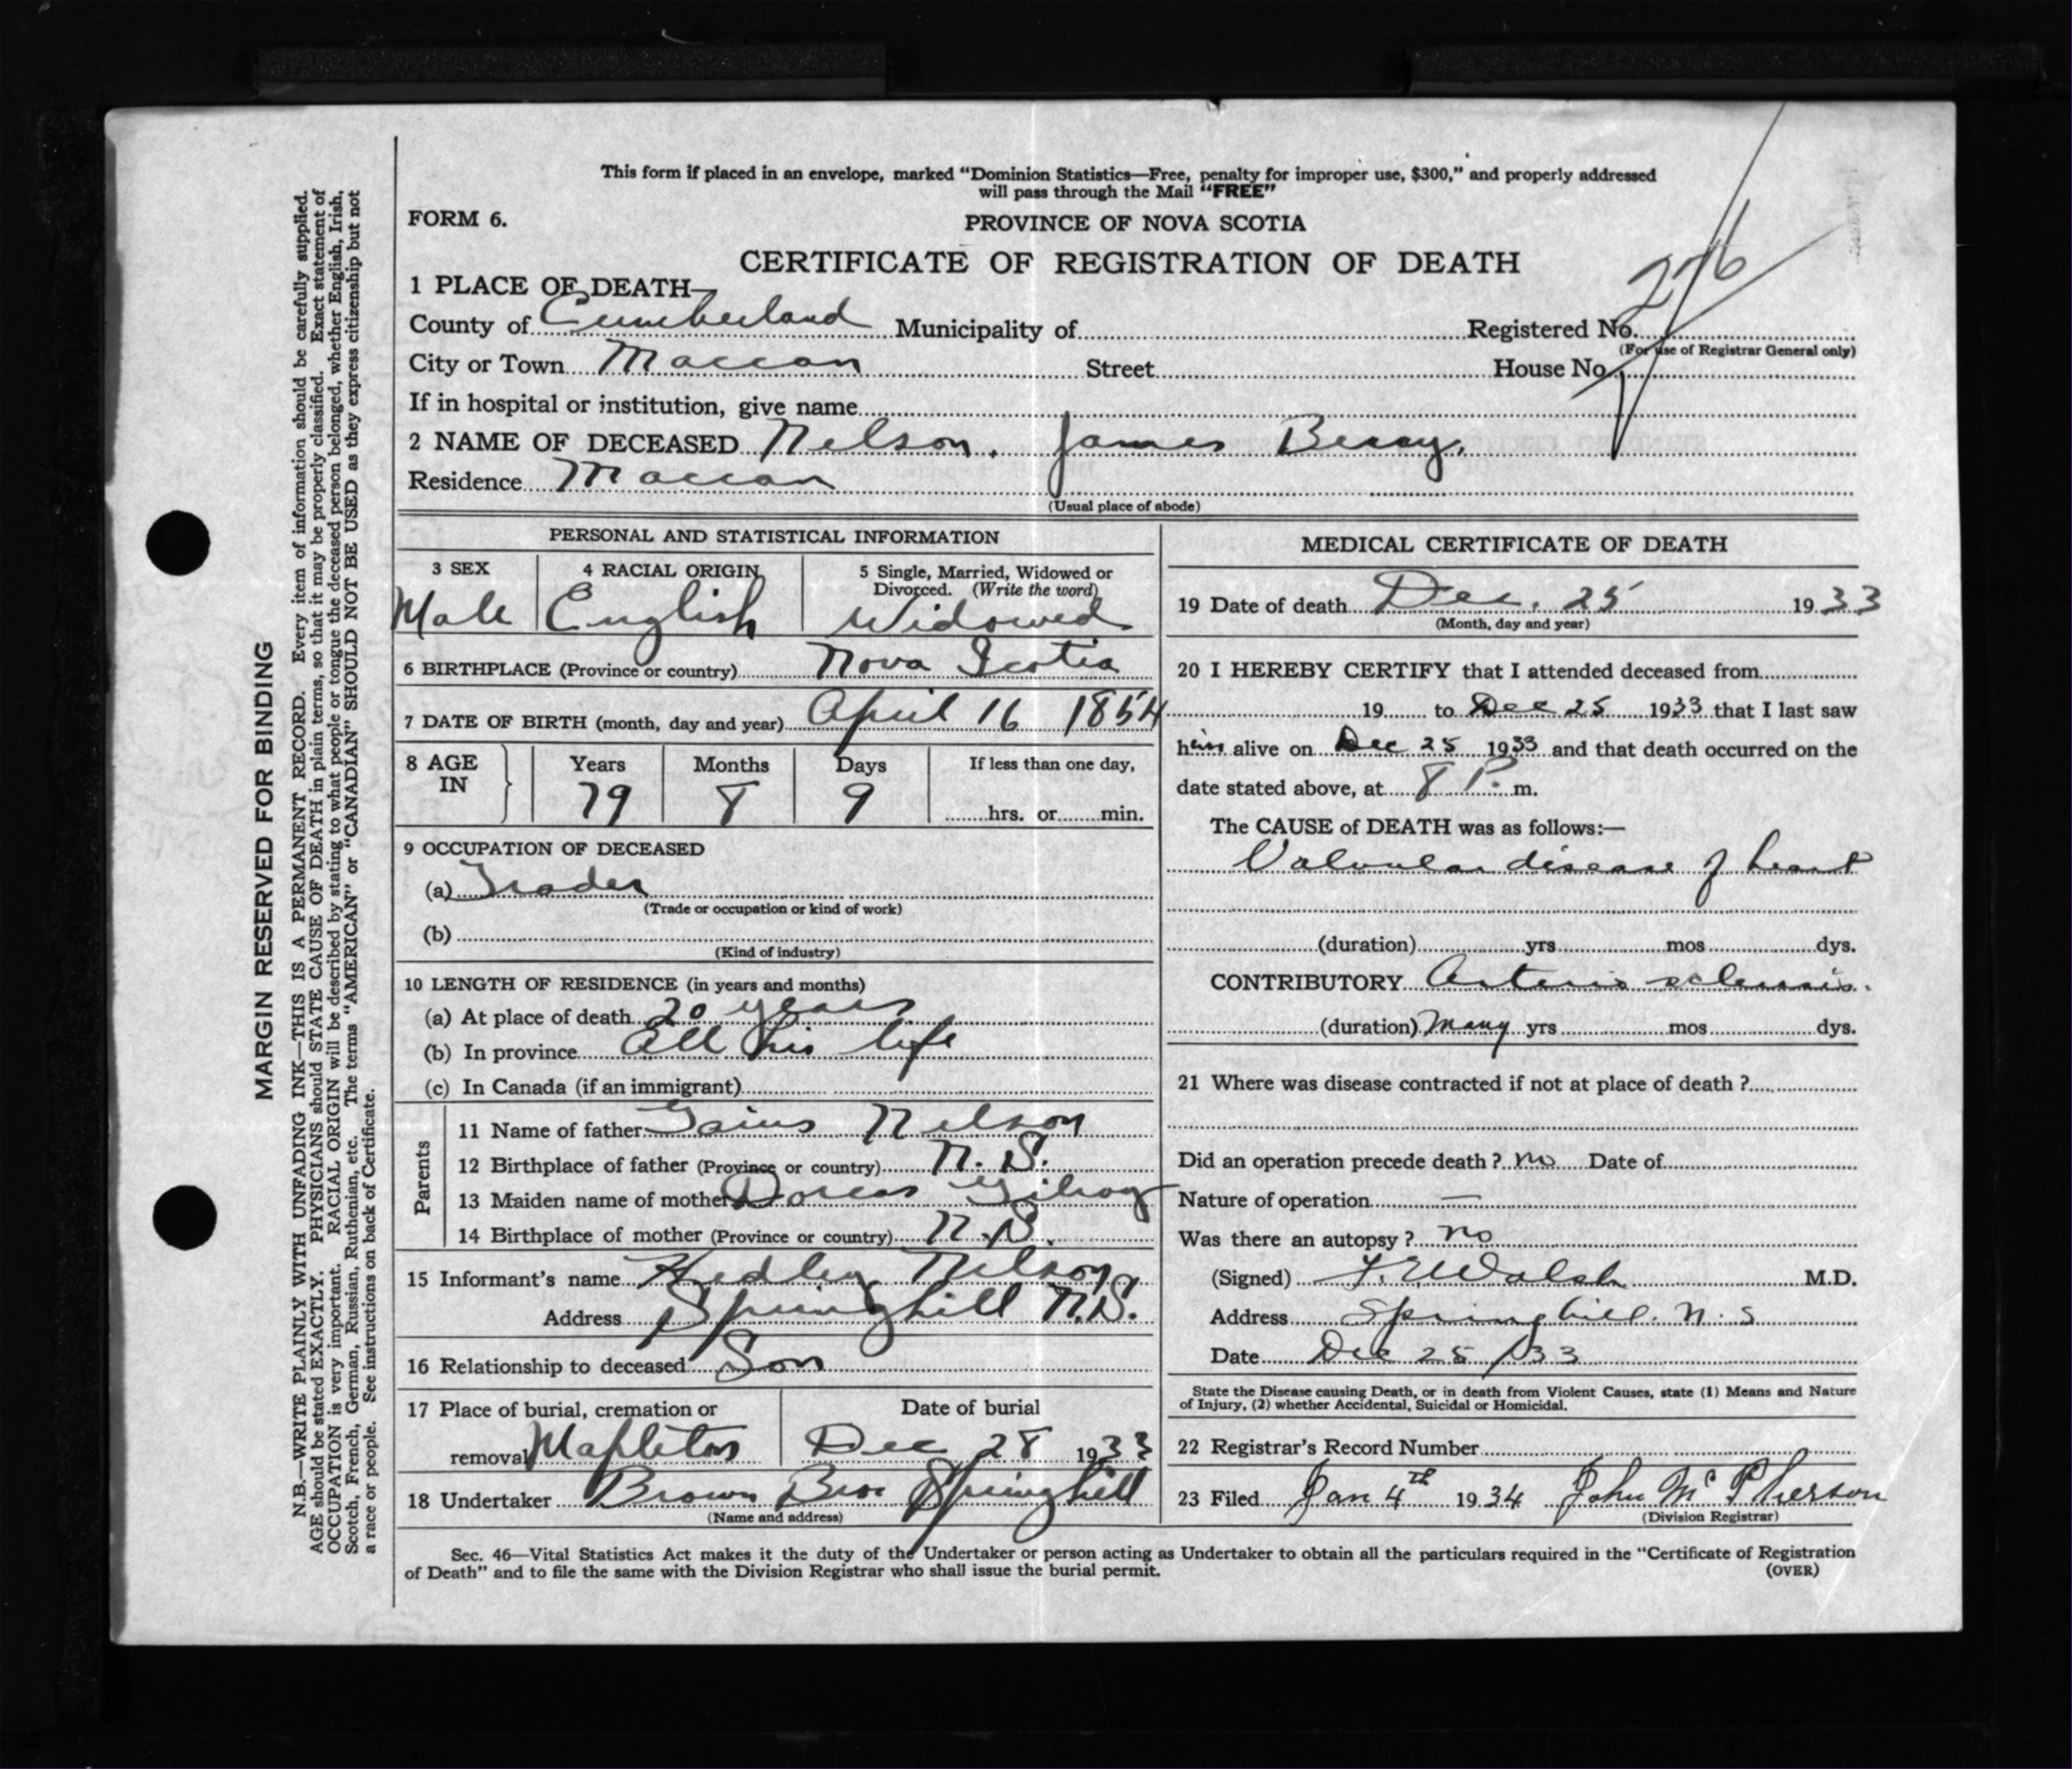 This form if placed in an envelope, marked "Dominion Statistics—Free, penalty for improper use, $300," and properly addressed
will pass through the Mail "FREE"
FORM 6.
PROVINCE OF NOVA SCOTIA
CERTIFICATE OF REGISTRATION OF DEATH
276
1 PLACE OF DEATH—
County of Cumberland Municipality of Registered No.
(For use of Registrar General only)
City or Town Maccan Street House No.
If in hospital or institution, give name
2 NAME OF DECEASED Nelson, James Berry,
Residence Maccan
(Usual place of abode)
PERSONAL AND STATISTICAL INFORMATION
3 SEX 4 RACIAL ORIGIN 5 Single, Married, Widowed or
Divorced. (Write the word)
Male English Widowed
6 BIRTHPLACE (Province or country) Nova Scotia
7 DATE OF BIRTH (month, day and year) April 16 1854
8 AGE Years Months Days If less than one day,
IN 79 8 9 hrs. or min.
9 OCCUPATION OF DECEASED
(a) Trader
(Trade or occupation or kind of work)
(b)
(Kind of industry)
10 LENGTH OF RESIDENCE (in years and months)
(a) At place of death 20 years
(b) In province All his life
(c) In Canada (if an immigrant)
Parents
11 Name of father Gaius Nelson
12 Birthplace of father (Province or country) N. S.
13 Maiden name of mother Dorcas Gilroy
14 Birthplace of mother (Province or country) N.S.
15 Informant's name Hedley Nelson
Address Springhill N.S.
16 Relationship to deceased Son
17 Place of burial, cremation or Date of burial
removal Mapleton Dec 28 1933
18 Undertaker Brown Bros Springhill
(Name and address)
MEDICAL CERTIFICATE OF DEATH
19 Date of death Dec. 25 1933
(Month, day and year)
20 I HEREBY CERTIFY that I attended deceased from
19 to Dec 25 1933 that I last saw
him alive on Dec 25 1933 and that death occurred on the
date stated above, at 8 P. m.
The CAUSE of DEATH was as follows:—
Valvular disease of heart
(duration) yrs mos dys.
CONTRIBUTORY Arterio sclerosis.
(duration) Many yrs mos dys.
21 Where was disease contracted if not at place of death ?
Did an operation precede death ? no Date of
Nature of operation —
Was there an autopsy ? no
(Signed) F. E. Walsh M.D.
Address Springhill. N.S
Date Dec 25 /33
State the Disease causing Death, or in death from Violent Causes, state (1) Means and Nature
of Injury, (2) whether Accidental, Suicidal or Homicidal.
22 Registrar's Record Number
23 Filed Jan 4th 1934 John McPherson
(Division Registrar)
Sec. 46—Vital Statistics Act makes it the duty of the Undertaker or person acting as Undertaker to obtain all the particulars required in the "Certificate of Registration
of Death" and to file the same with the Division Registrar who shall issue the burial permit.
(OVER)
MARGIN RESERVED FOR BINDING
N.B.—WRITE PLAINLY WITH UNFADING INK—THIS IS A PERMANENT RECORD. Every item of information should be carefully supplied.
AGE should be stated EXACTLY. PHYSICIANS should STATE CAUSE OF DEATH in plain terms, so that it may be properly classified. Exact statement of
OCCUPATION is very important. RACIAL ORIGIN will be described by stating to what people or tongue the deceased person belonged, whether English, Irish,
Scotch, French, German, Russian, Ruthenian, etc. The terms "AMERICAN" or "CANADIAN" SHOULD NOT BE USED as they express citizenship but not
a race or people. See instructions on back of Certificate.